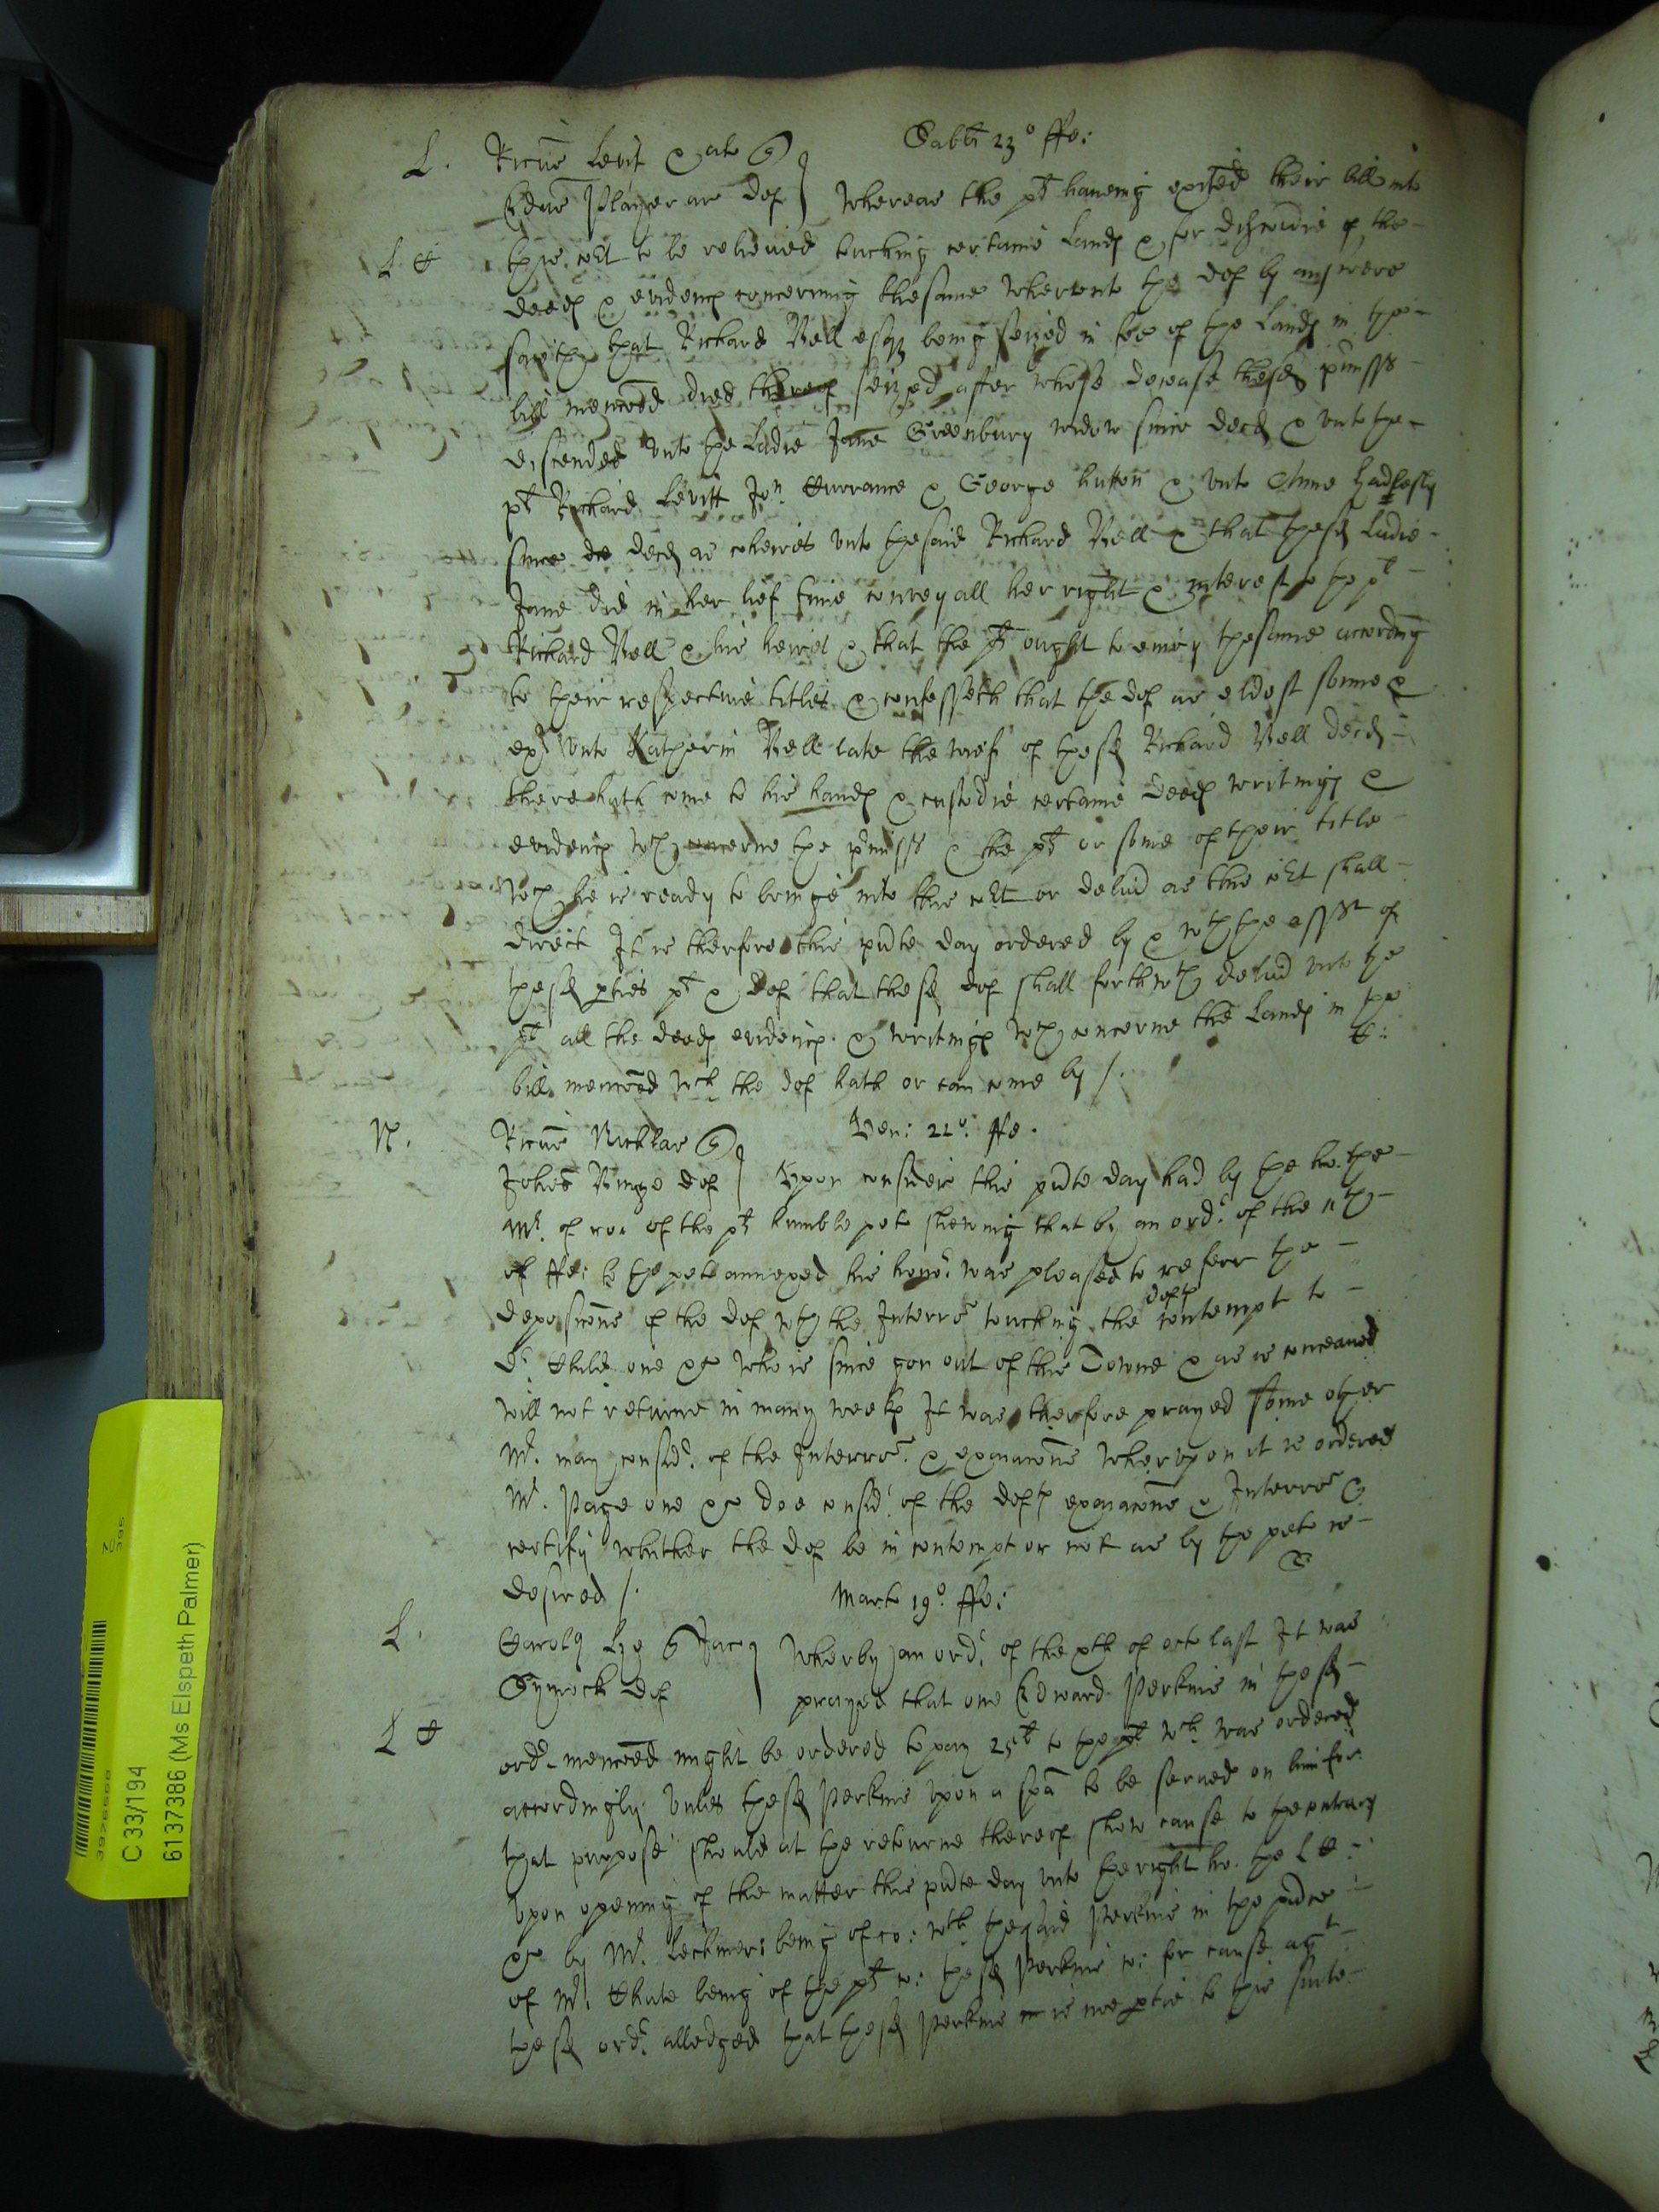 Sabti 23° ffe:
L. Ricus Levit & al q
Edrus Player ar def } Whereas the plt haveing exhited their bill into
L C this Court to be releived touching certaine Lands & for discoverie of the
deeds & evidence concerning the same Wherunto the def by answere
sayth that Richard Bell esqr being seized in fee of the Lands in the
bill menconed died thereof seized after whose decease the sd premisses
discended unto the Ladie Jane Greenbury widow since decd & unto the
plt Richard Levitt Jon Currance & George Hutton & unto Anne
since de decd as coheires unto the said Richard Bell & that the sd Ladie
Jane did in her lief time convey all her right & interest to the plt
Richard Bell & his heires & that the plt ought to enioy the same according
to their respective titles & confesseth that the def as eldest sonne &
exr unto Katherin Bell late the wief of the sd Richard Bell decd
there hath come to his hands & custodie certaine deeds writings &
evidence wch concerne the premisses & the plt or some of their title
wch he is ready to bringe into this Court or delivr as this Court shall
direct It is therfore this pnte day ordered by & wth the asst of
the sd pties plt & def that the sd def shall forthwth delivr unto the
plt all the deeds evidence & writings wch concerne the Lands in the
C:
bill menconed wch the def hath or can come by /.
Ven: 22°: ffe.
N. Ricus q
Johes def } Upon considr this pnte day had by the ho: the
Mr of ro: of the plt humble peto shewing that by an ordr of the 11th
of ffe: to the peto annexed his honor was pleased to referr the
deposicons of the def wth the Interr touching the defts contempt to
Dr Childe one &c who is since gon out of this Towne & as is conceaved
will not returne in many weeks It was therfore prayed some other
Mr may considr of the Interr & exanacons Wherupon it is ordered
Mr Page one &c doe considr of the defts exanacons & Interr &
certify whither the def be in contempt or not as by the peto is
desired /. Marts 19° ffe:
L. Carolus q Jaco } Wherby an ordr of the xth of octo last It was
Gymock def prayed that one Edward Perkins in the sd
L C ordr menconed might be ordered to pay 25l to the plt wch was ordered
accordingly unles the sd Perkins upon a spa to be served on him for
that purpose should at the returne thereof shew cause to the contrary
Upon opening of the matter this pnte day unto the right ho. the L C
&c by Mr Lechmere being of co: wth the said Perkins in the pnce
of Mr Chute being of the plt co: the sd Perkins co: for cause agt
the sd ordr alledged that the sd Perkins is noe ptie to this suite
C 33/194
6137386 (Ms Elspeth Palmer)